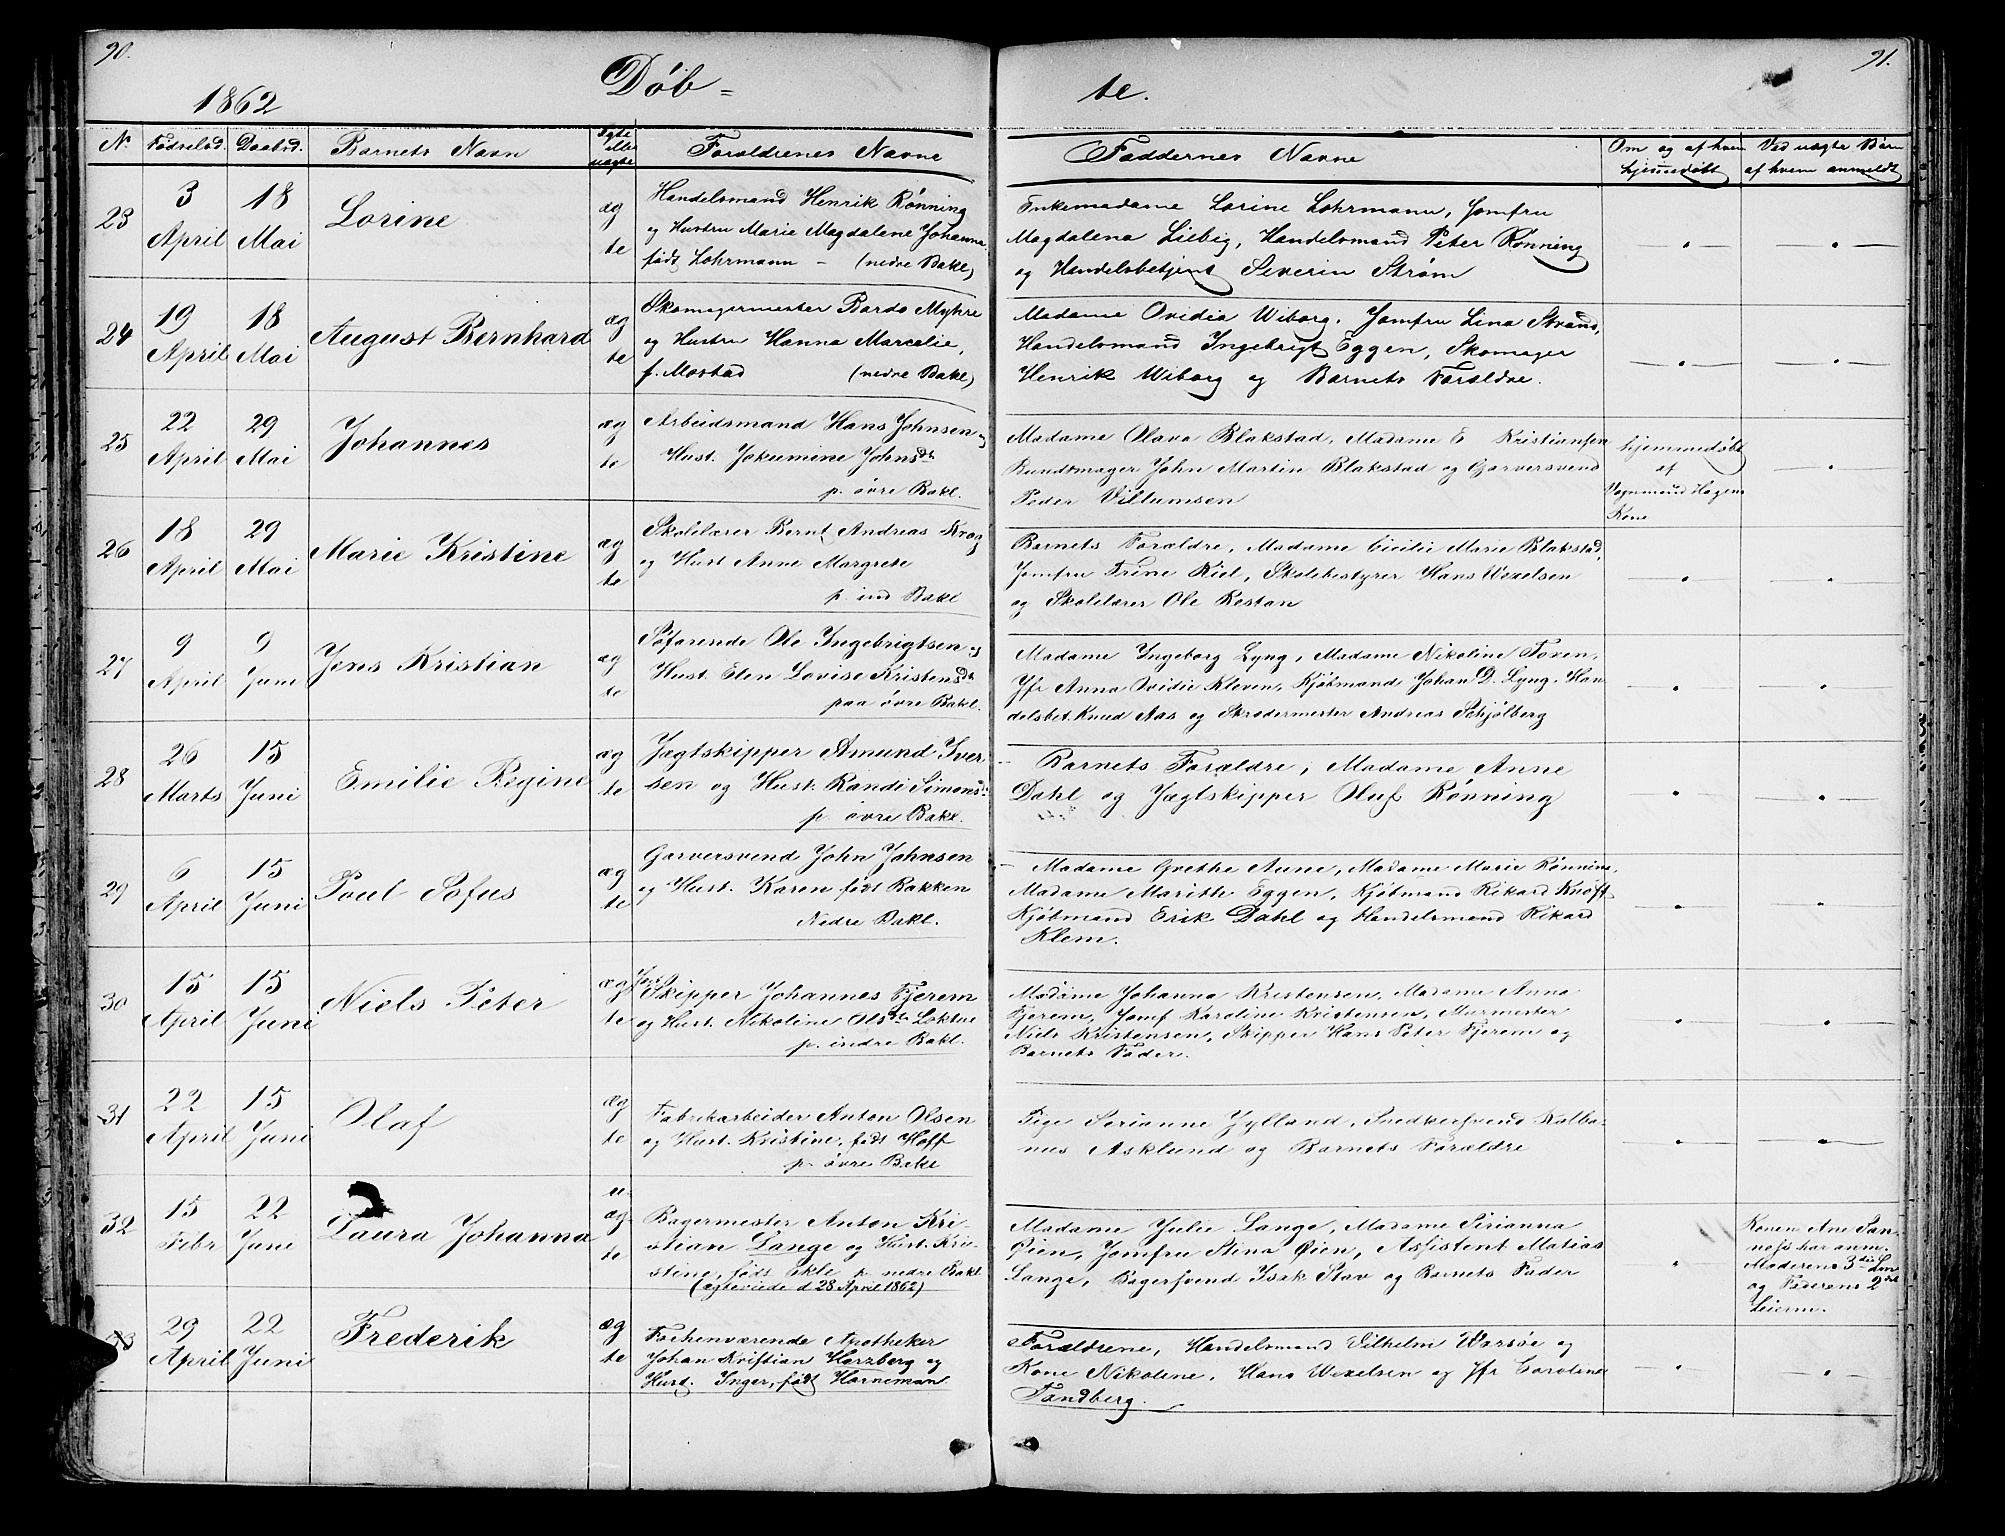 90.
1862
Døb=
N.
Fødselsd.
Daabsd.
Barnets Navn
Ægte eller uægte
Forældrenes Navne
23
3 April
18 Mai
Lorine
ægte
Handelsmand Henrik Rønning
og Hustru Marie Magdalene Johanna,
født Lohrmann - (nedre Bakl)
24
19 April
18 Mai
August Bernhard
ægte
Skomagermester Bardo Myhre
og Hustru Hanna Marcelie,
f. Mostad (nedre Bakl)
25
22 April
29 Mai
Johannes
ægte
Arbeidsmand Hans Johnsen og
Hust. Jokumine Johnsdt
p. øvre Bakl.
26
18 April
29 Mai
Marie Kristine
ægte
Skolelærer Bernt Andreas Krog
og Hust Anne Margrete
p. ind Bakl
27
9 April
9 Juni
Jens Kristian
ægte
Søfarende Ole Ingebrigtsen og
Hust. Elen Lovise Kristensdt
paa øvre Bakl.
28
26 Marts
15 Juni
Emilie Regine
ægte
Jægtskipper Amund Iver-
sen og Hust. Randi Simonsd.
p. øvre Bakl.
29
6 April
15 Juni
Poul Sofus
ægte
Garversvend John Johnsen
og Hust. Karen født Bakken
Nedre Bakl.
30
15 April
15 Juni
Niels Peter
ægte
Skipper Johannes Fjerem
og Hust. Nikoline Olsdt Loktue
p. indre Bakl.
31
22 April
15 Juni
Olaf
ægte
Fabrikarbeider Anton Olsen
og Hust. Kristine, født Hoff
p. øvre Bakl
32
15 Febr
22 Juni
Laura Johanna
u-ægte
Bagermester Anton Kri-
stian Lange og Hust. Kri-
stine, født Ekle p. nedre Bakl
(ægteviede d 28 April 1862)
33
29 April
22 Juni
Frederik
ægte
Forhenværende Apotheker
Johan Kristian Harzberg og
Hust. Inger, født Horneman
91.
te.
Faddernes Navne
Om og af hvem
hjemmedøbt
Ved uægte Børn
af hvem anmeldt
Enkemadame Lorine Lohrmann, Jomfru
Magdalena Liebig, Handelsmand Peter Rønning
og Handelsbetjent Severin Strøm
Madame Ovidia Wiborg, Jomfru Lina Strand,
Handelsmand Ingebrigt Eggen, Skomager
Henrik Wiborg og Barnets Forældre.
Madame Olava Blakstad, Madame E Kristiansen
Bundtmager John Martin Blakstad og Garversvend
Peder Villumsen
hjemmedøbt
af
Vognmand Hagens
Kone
Barnets Forældre, Madame Cicilie Marie Blakstad,
Jomfru Trine Kiel, Skolebestyrer Hans Wexelsen
og Skolelærer Ole Restan
Madame Ingeborg Lyng, Madame Nikoline Foxen,
Jfr Anna Ovidie Kleven, Kjøbmand Johan D. Lyng, Han-
delsbet. Knud Aas og Skrædermester Andreas Schjølberg
Barnets Forældre, Madame Anne
Dahl og Jægtskipper Oluf Rønning
Madame Grethe Aune, Madame Marie Rønning,
Madame Marith Eggen, Kjøbmand Rikard Knoff
Kjøbmand Erik Dahl og Handelsmand Rikard
Klem.
Madame Johanna Kristensen, Madame Anna
Fjerem, Jomf Karoline Kristensen, Murmester
Niels Kristensen, Skipper Hans Peter Fjerem og
Barnets Fader.
Pige Serianne Jylland, Snedkersvend Kolbe-
nus Asklund og Barnets Forældre
Madame Julie Lange, Madame Sirianna
Øien, Jomfru Stina Øien, Assistent Matias
Lange, Bagersvend Isak Stav og Barnets Fader
Konen Ane
har anm.
Moderens 3die
og Faderens 2det
Leierm.
Forældrene, Handelsmand Vilhelm Warsøe og
Kone Nikoline, Hans Wexelsen og Jfr Caroline
Tandberg.